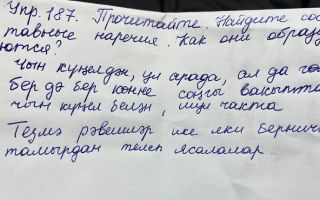 Упр. 187. Прочитайте. Найдите сос
тавные наречия. Как они образу
ются?
Чын күңелдән, ул арада, ал да
бер дә бер көнне соңгы вакытта
чын күңел белән, шул чакта
Тезмә рәвешләр ике яки берничә
тамырдан төзелеп ясалалар.